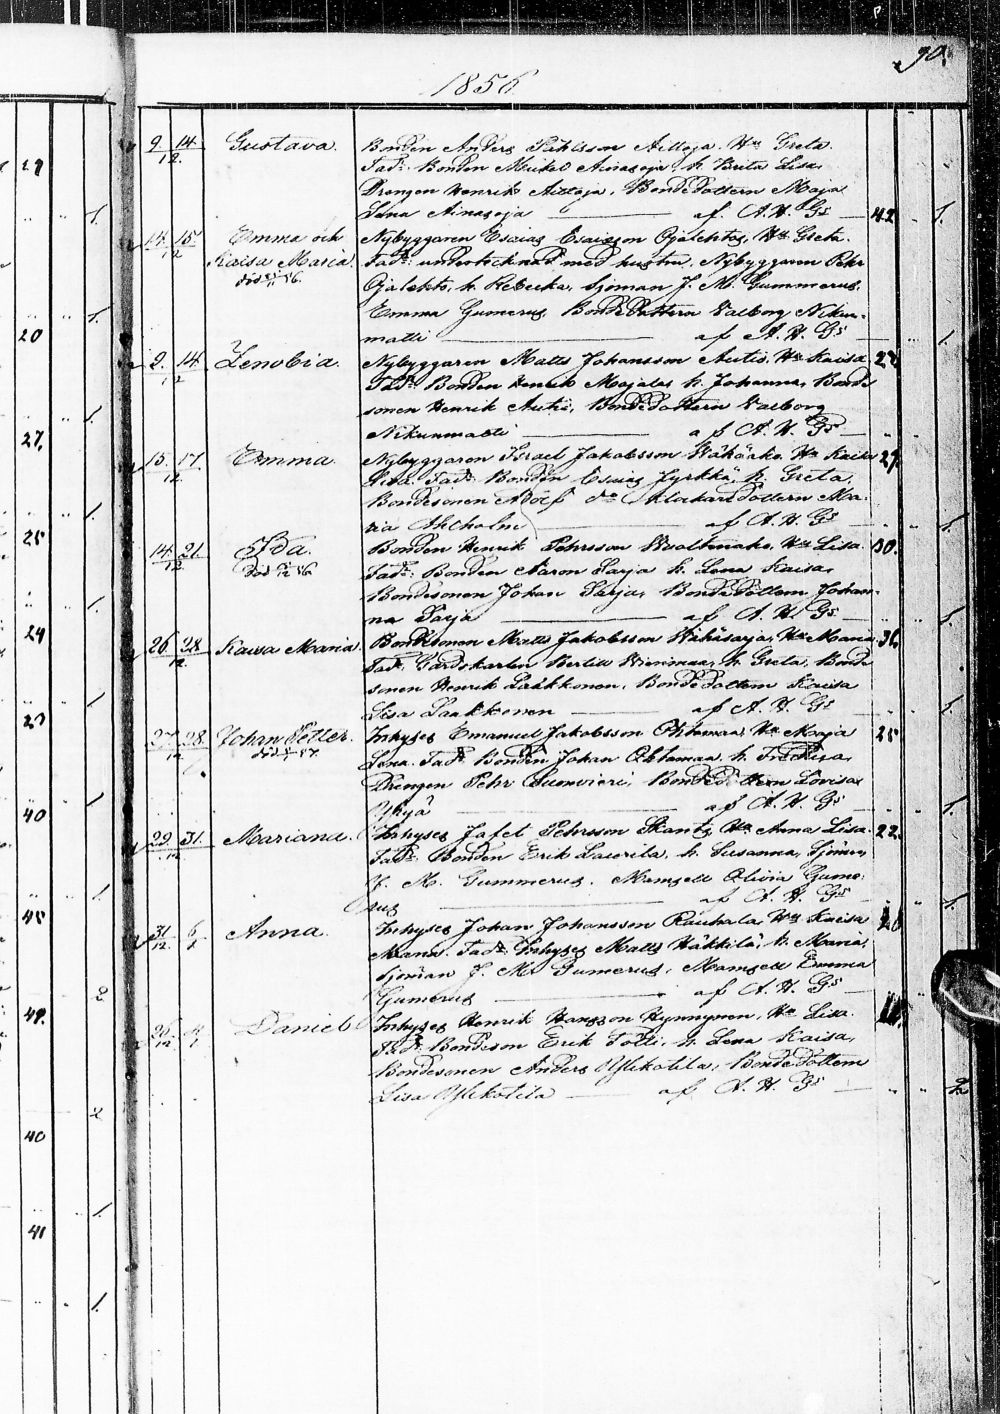 90.
1856
9 14 Gustava. Bonden Anders Påhlsson Aittoja. Hu Greta.
12 Fadr: Bonden Mickel Ainasoja, h. Brita Lisa,
Drengen Henrik Aittoja, Bondedottern Maja
Lena Ainasoja af. A. H. Gs 42. 1.
14. 15. Emma och Nybyggaren Esaias Esaiasson Ojalehto, Hu Greta.
12 Kaisa Maria. Fadr: undertecknad med hustru, Nybyggaren Pehr
död 56. Ojalehto, h. Rebecka, Sjöman J. M. Gummerus,
Emma Gumerus, Bondedottern Valborg Nikun-
matti af A. H. Gs 1
2. 14. Zenobia. Nybyggaren Matts Johansson Autio, Hu Kaisa 22
12 Fadr: Bonden Henrik Majala, h. Johanna, Bonde
sonen Henrik Autio, Bondedottern Valborg
Nikunmatti af A. H. Gs
15. 17. Emma. Nybyggaren Israel Jakobsson Kaisa 29.
12 Fadr: Bonden Esaias Jyrkkä, h. Greta,
Bondesonen Adolf Klockaredottern Ma:
ria Ahlholm af A. H. Gs 1.
14. 21. Ida. Bonden Henrik Pehrsson Hu Lisa. 30.
12 död 56 Fadr: Bonden Aaron Sarja h. Lena Kaisa,
Bondesonen Johan Sarja, Bondedottern Johan-
na Sarja af A. H. Gs 1.
26. 28. Kaisa Maria. Bondesonen Matts Jakobsson Wähäsarja, Hu Maria 36.
12 Fadr: Gårdskarlen Bertill h. Greta, Bonde
sonen Henrik Laakkonen, Bondedottern Kaisa
Lisa Laakkonen af A. H. Gs 1.
27. 28. Johan Petter. Inhyses Emanuel Jakobsson Ohtamaa, Hu Maja 25
12 död 57. Lena. Fadr: Bonden Johan Ohtamaa, h. Fredrika,
Drengen Pehr Sumvieri, Bondedottern Lovisa
af A. H. Gs 1.
29. 31. Mariana. Inhyses Jafet Pehrsson Skants, Hu Anna Lisa. 22.
12 Fadr: Bonden Erik Laurila, h. Susanna, Sjöman
J. M. Gummerus. Mamsell Olivia Gume:
rus af A. H. Gs 1.
31. 6 Anna. Inhyses Johan Johansson Rauhala, Hu Kaisa
12 1 Maria. Fadr: Inhyses Matts Häkkilä, h. Maria,
Sjöman J. M. Gumerus, Mamsell Emma
Gumerus af A. H. Gs
Daniel Inhyses Henrik Hansson Hynnynen, Hu Lisa.
12 1 Fadr: Bondeson Erik Tolli, h. Lena Kaisa,
Bondesonen Anders Ylikotila, Bondedottern
Lisa Ylikotila af A. H. Gs 2